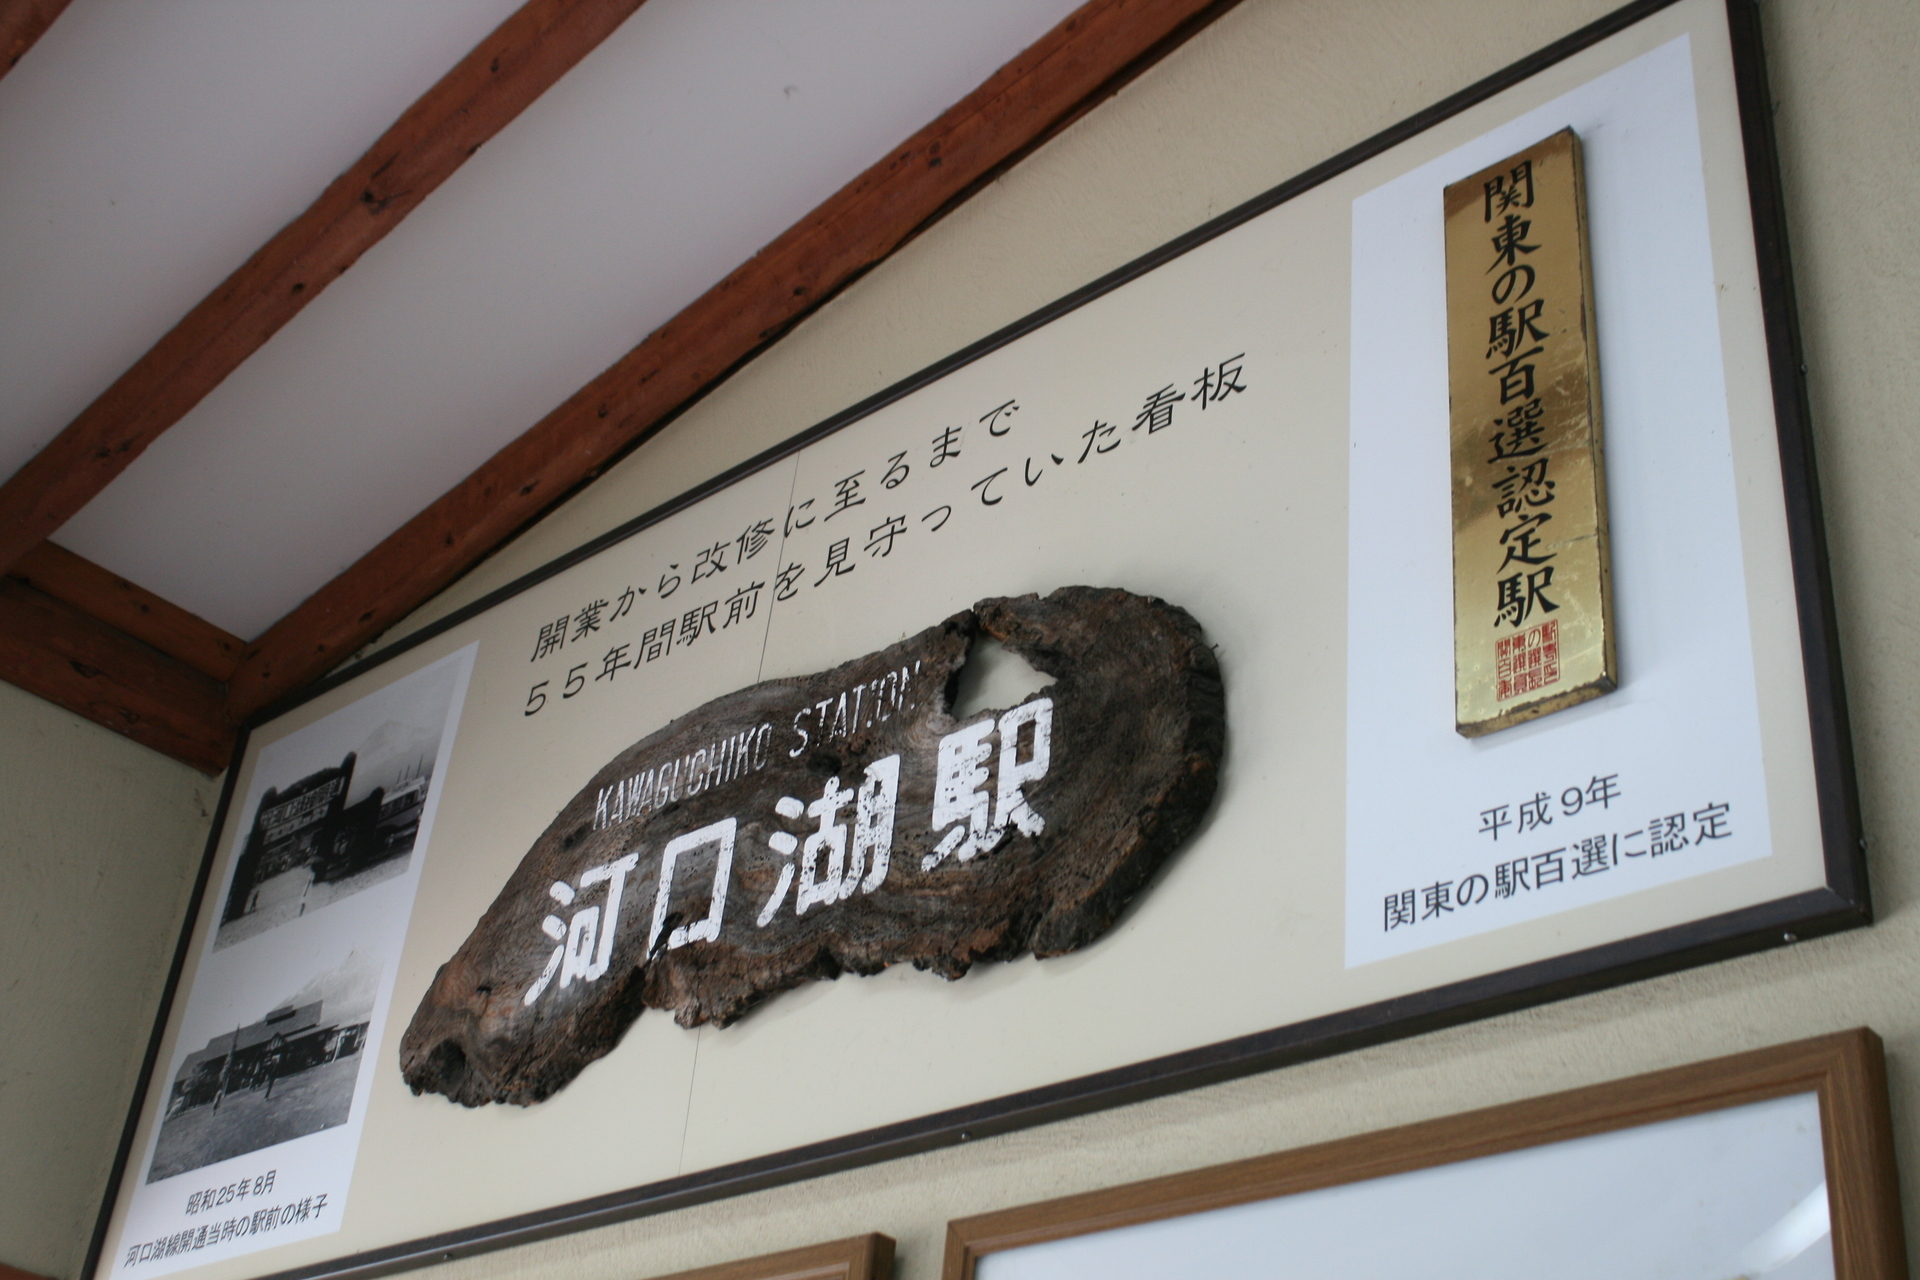 開業から改修に至るまで
55年間駅前を見守っていた看板
KAWAGUCHIKO STATION
河口湖駅
昭和25年8月
河口湖線開通当時の駅前の様子
関東の駅百選認定駅
平成9年
関東の駅百選に認定